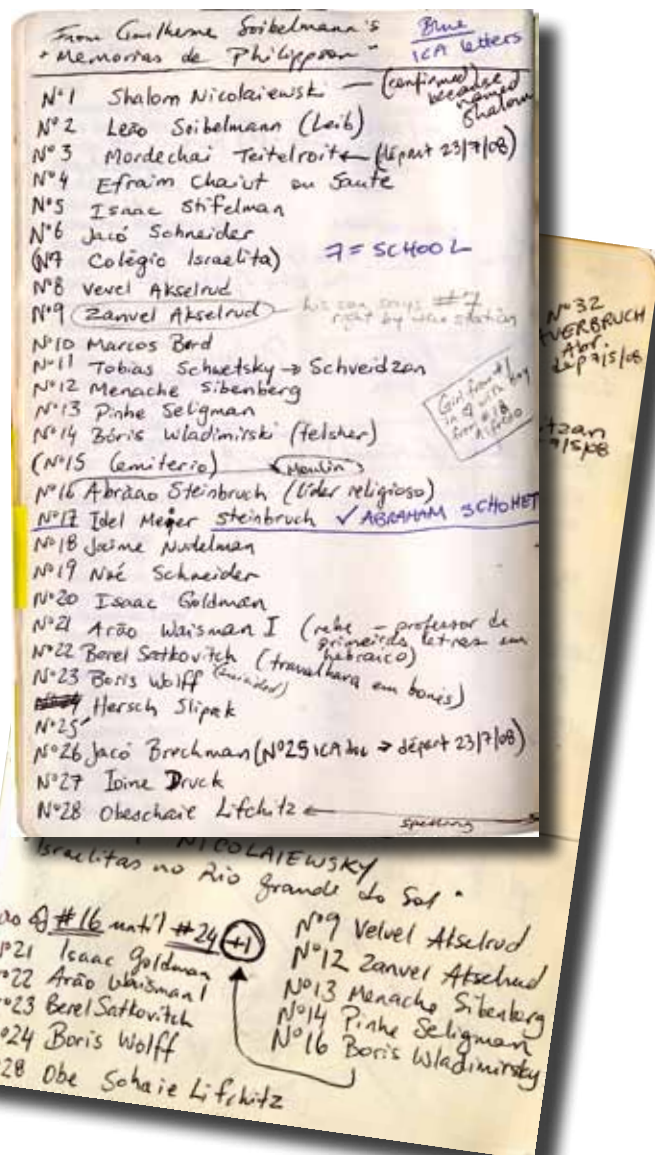 From Guilherme Soibelmann's
"Memorias de Philippson"
Blue
ICA letters
Nº1 Shalom Nicolaiewski — (confirmed) because named Shalom
Nº2 Leão Soibelmann (Leib)
Nº3 Mordechai Teitelroit ← (départ 23/7/08)
Nº4 Efraim Chaiut ou Saute
Nº5 Isaac Stifelman
Nº6 Jacó Schneider
(Nº7 Colégio Israelita) 7 = SCHOOL
Nº8 Vevel Akselrud
Nº9 Zanvel Akselrud — his son says #7
right by station
Nº10 Marcos Bord
Nº11 Tobias Schwetsky → Schveidzan
Nº12 Menache Sibenberg
Girl from #1
in with boy
from #18
Alfredo
Nº13 Pinhe Seligman
Nº14 Bóris Wladimirski (felsher)
(Nº15 Cemiterio) Moulin
Nº16 Abraão Steinbruch (líder religioso)
Nº17 Idel Meyer Steinbruch ✓ ABRAHAM SCHOHET
Nº18 Jaime Nudelman
Nº19 Noé Schneider
Nº20 Isaac Goldman
Nº21 Arão Waisman I (rebe – professor de
primeiras letras em
hebraico)
Nº22 Berel Satkovitch (travalhava em bonés)
Nº23 Boris Wolff
Nº24 Hersch Slipak
Nº25
Nº26 Jacó Brechman (Nº25 ICA doc → départ 23/7/08)
Nº27 Ioine Druck
Nº28 Obeschaie Lifchitz ←
spelling
Nº32
VERBRUCH
Abr.
dép 7/5/08
tzan
7/5/08
NICOLAIEWSKY
Israelitas no Rio Grande do Sol"
#16 until #24 +1
º21 Isaac Goldman
º22 Arão Waisman I
º23 Berel Satkovitch
º24 Boris Wolff
º28 Obe Sohaie Lifchitz
Nº9 Velvel Akselrud
Nº12 Zanvel Akselrud
Nº13 Menache Sibenberg
Nº14 Pinhe Seligman
Nº16 Boris Wladimirsky